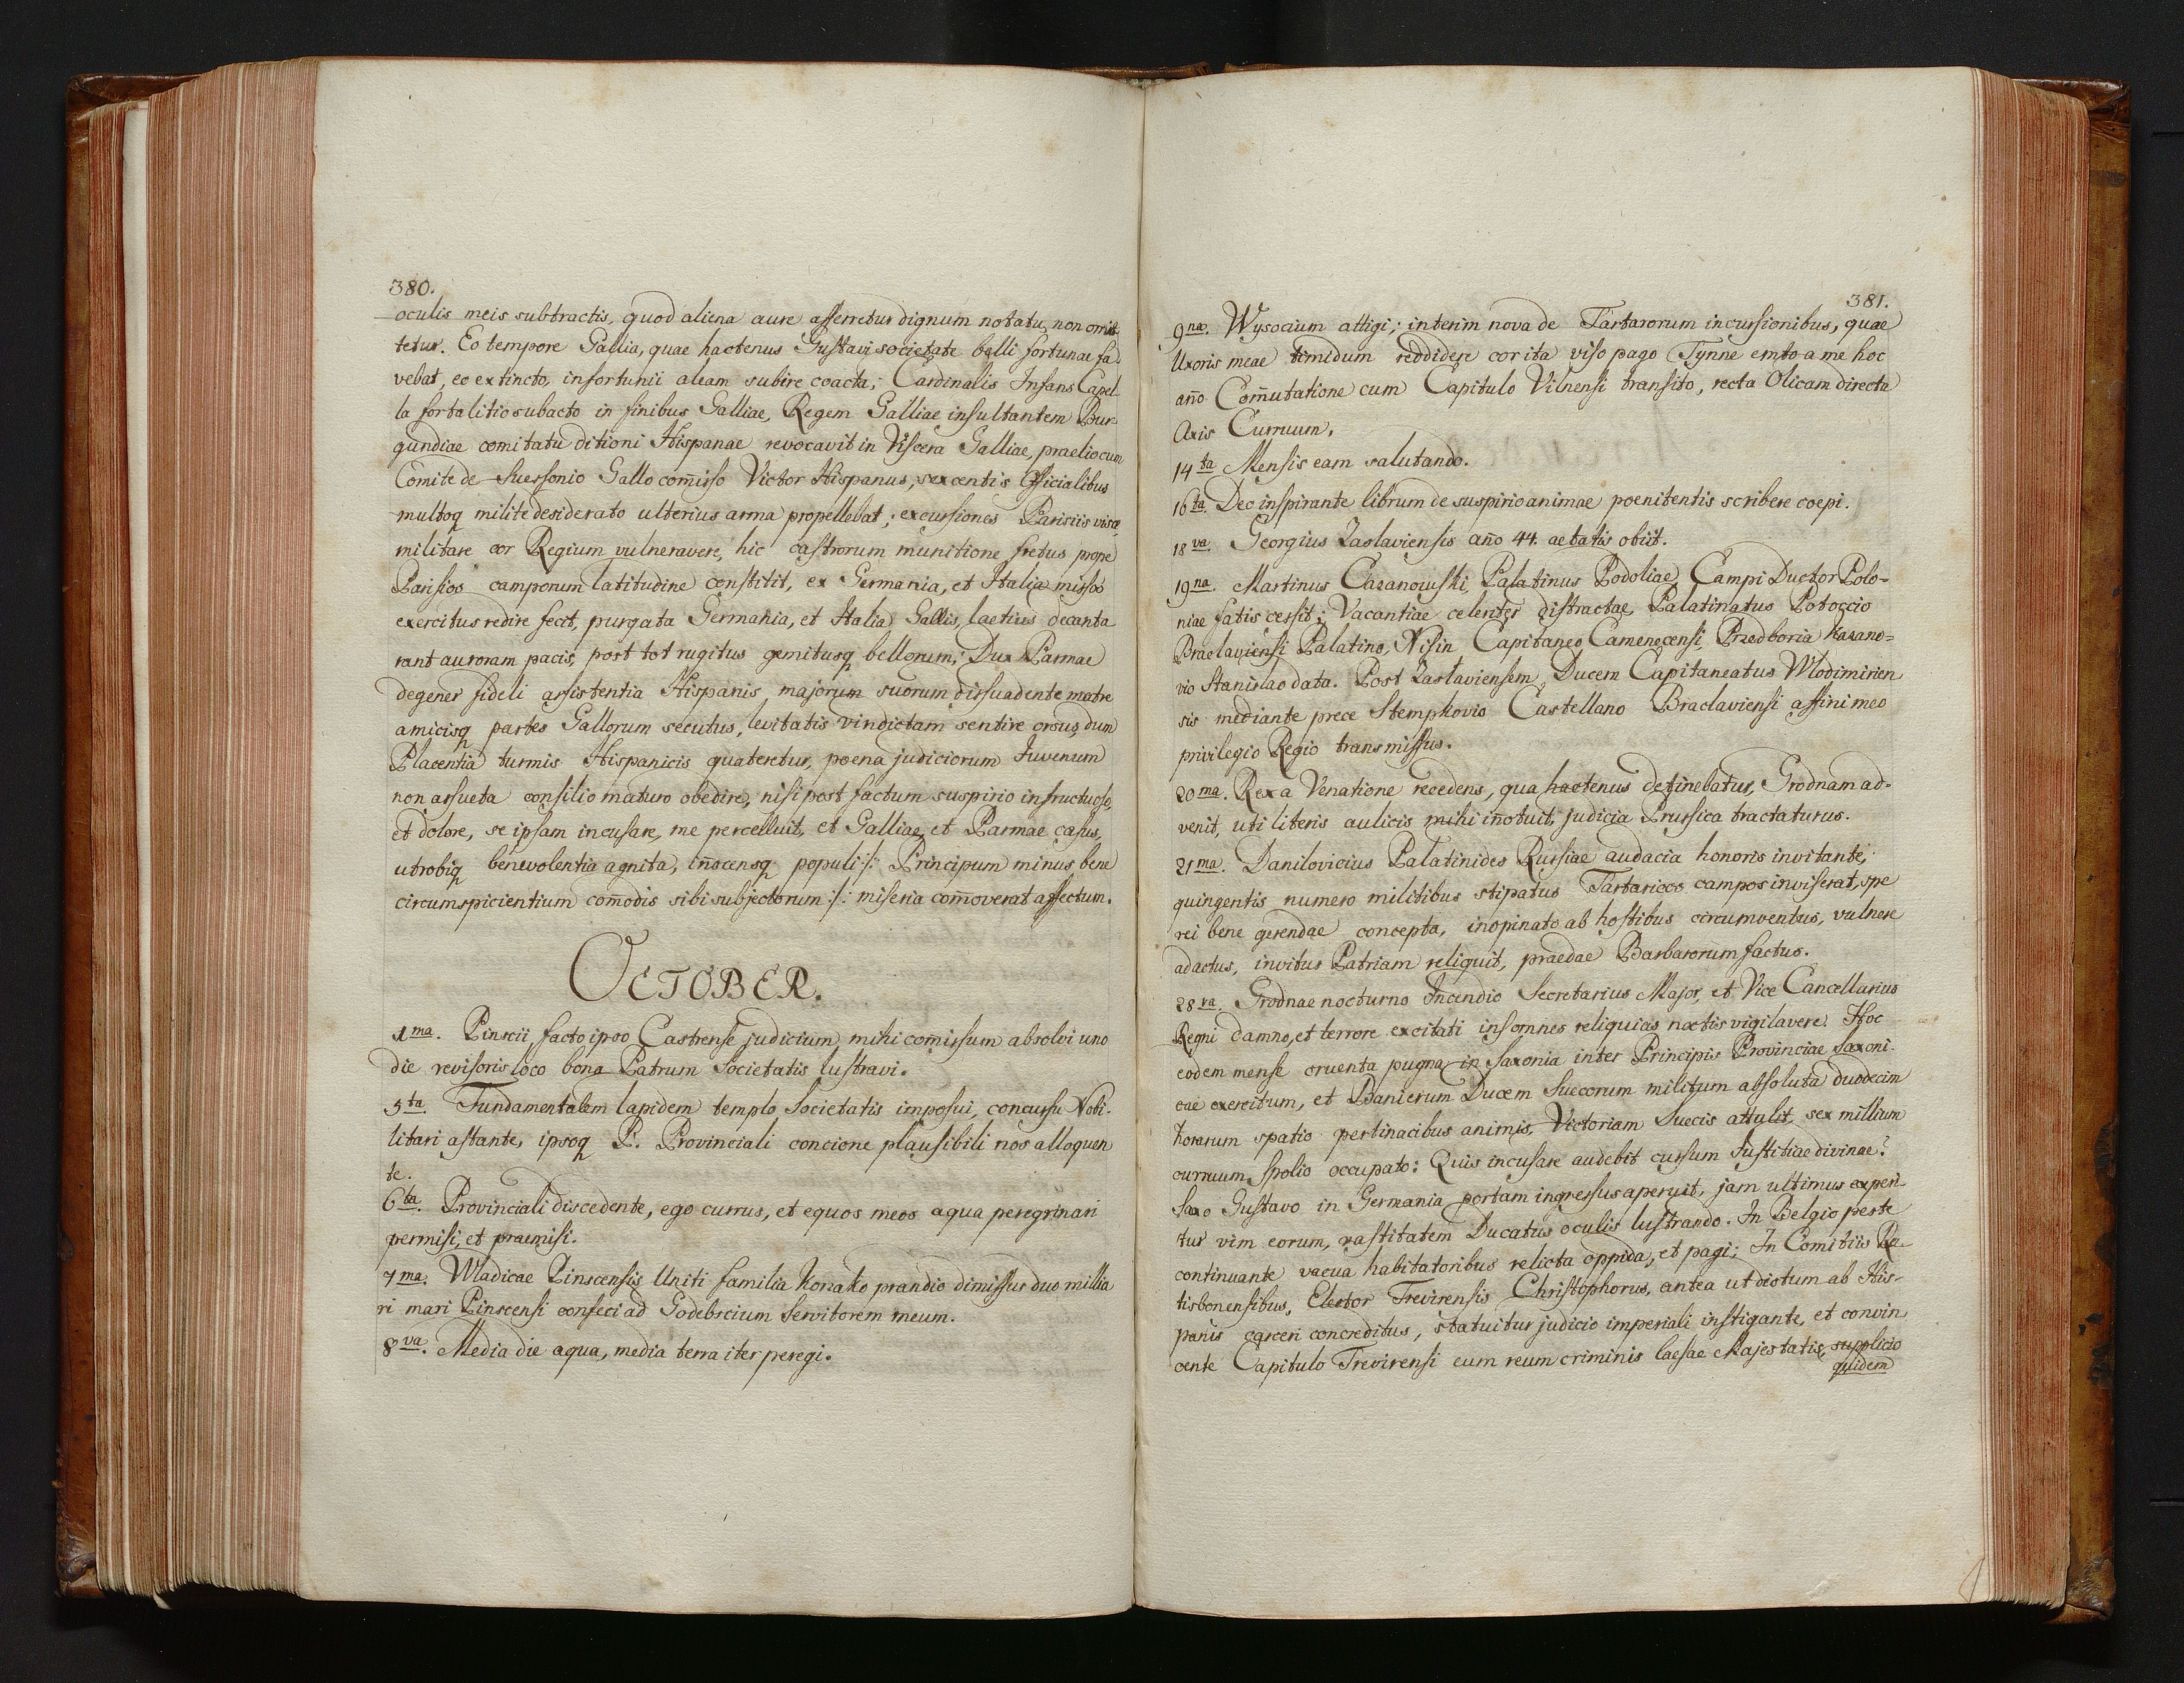 380.
oculis meis subtractis, quod aliena aure afferretur dignum notatu, non omit
tetur. Eo tempore Gallia, quae hactenus Gustavi societate belli fortunae fa
vebat, eo extincto, infortunii aleam subire coacta; Cardinalis Infans Capel
la fortalitio subacto in finibus Galliae, Regem Galliae insultantem Bur-
gundiae comitatu ditioni Hispanae revocavit in Viscera Galliae, praelio cum
Comite de Suessonio Gallo com̄isso Victor Hispanus, sexcentis Officialibus
multoq milite desiderato ulterius arma propellebat; excursiones Parisiis visae,
militare cor Regium vulneravere, hic castrorum munitione fretus prope
Parisios camporum latitudine constitit, ex Germania, et Italia missos
exercitus redire fecit, purgata Germania, et Italia Gallis, laetius decanta
rant auroram pacis, post tot rugitus gemitusq bellorum; Dux Parmae
degener fideli assistentia Hispanis, majorum suorum dissuadente matre
amicisq partes Gallorum secutus, levitatis vindictam sentire orsus, dum
Placentia turmis Hispanicis quateretur, poena judiciorum Juvenum
non assueta consilio maturo obedire, nisi post factum suspirio infructuoso,
et dolore, se ipsam incusare, me percelluit, et Galliae, et Parmae casus,
utrobiq benevolentia agnita, in̄ocensq populi :/: Principum minus bene
circumspicientium com̄odis sibi subjectorum :/: miseria com̄overat affectum.
OCTOBER.
1ma. Pinscii facto ipso Castrense judicium mihi com̄issum absolvi uno
die revisoris loco bona Patrum Societatis lustravi.
5ta. Fundamentalem lapidem templo Societatis imposui, concursu Nobi-
litari astante, ipsoq P. Provinciali concione plausibili nos alloquen
te.
6ta. Provinciali discedente, ego currus, et equos meos aqua peregrinari
permisi, et praemisi.
7ma. Wladicae Pinscensis Uniti familia Korsako prandio dimissus duo millia
ri mari Pinscensi confeci ad Godebscium Servitorem meum.
8va. Media die aqua, media terra iter peregi.
381.
9na. Wysocium attigi; interim nova de Tartarorum incursionibus, quae
Uxoris meae timidum reddidere cor ita viso pago Tynne emto a me hoc
an̄o Com̄utatione cum Capitulo Vilnensi transito, recta Olicam directa
Axis Curruum.
14ta Mensis eam salutando.
16ta. Deo inspirante librum de suspirio animae poenitentis scribere coepi.
18va. Georgius Zaslaviensis an̄o 44. aetatis obiit.
19na. Martinus Cazanowski, Palatinus Podoliae, Campi Ductor Polo-
niae fatis cessit; Vacantiae celeriter distractae, Palatinatus Potoccio
Braclaviensi Palatino, Nisin Capitaneo Camenecensi, Przedboria Kazano-
vio Stanislao data. Post Zaslaviensem Ducem Capitaneatus Wlodimirien
sis mediante prece Stempkovio Castellano Braclaviensi affini meo
privilegio Regio transmissus.
20ma. Rex a Venatione recedens, qua hactenus detinebatur, Grodnam ad-
venit, uti literis aulicis mihi in̄otuit, judicia Prussica tractaturus.
21ma. Danilovicius Palatinides Russiae audacia honoris invitante,
quingentis numero militibus stipatus Tartaricos campos inviserat, spe
rei bene gerendae concepta, inopinato ab hostibus circumventus, vulnere
adactus, invitus Patriam reliquit, praedae Barbarorum factus.
28va. Grodnae nocturno Incendio Secretarius Major, et Vice Cancellarius
Regni damno, et terrore excitati insomnes reliquias noctis vigilavere. Hoc
eodem mense cruenta pugna in Saxonia inter Principis Provinciae Saxoni-
cae exercitum, et Banierum Ducem Suecorum militum absoluta duodecim
horarum spatio pertinacibus animis, Victoriam Suecis attulit, sex millium
curruum spolio occupato: Quis incusare audebit cursum Justitiae divinae?
Saxo Gustavo in Germania portam ingressus aperuit, jam ultimus experi-
tur vim eorum, vastitatem Ducatus oculis lustrando. In Belgio peste
continuante vacua habitatoribus relicta oppida, et pagi; In Comitiis Ra-
tisbonensibus, Elector Trevirensis Christophorus, antea ut dictum ab His-
panis carceri concreditus, statuitur judicio imperiali instigante, et convin
cente Capitulo Trevirensi eum reum criminis laesae Majestatis, supplicio
quidem